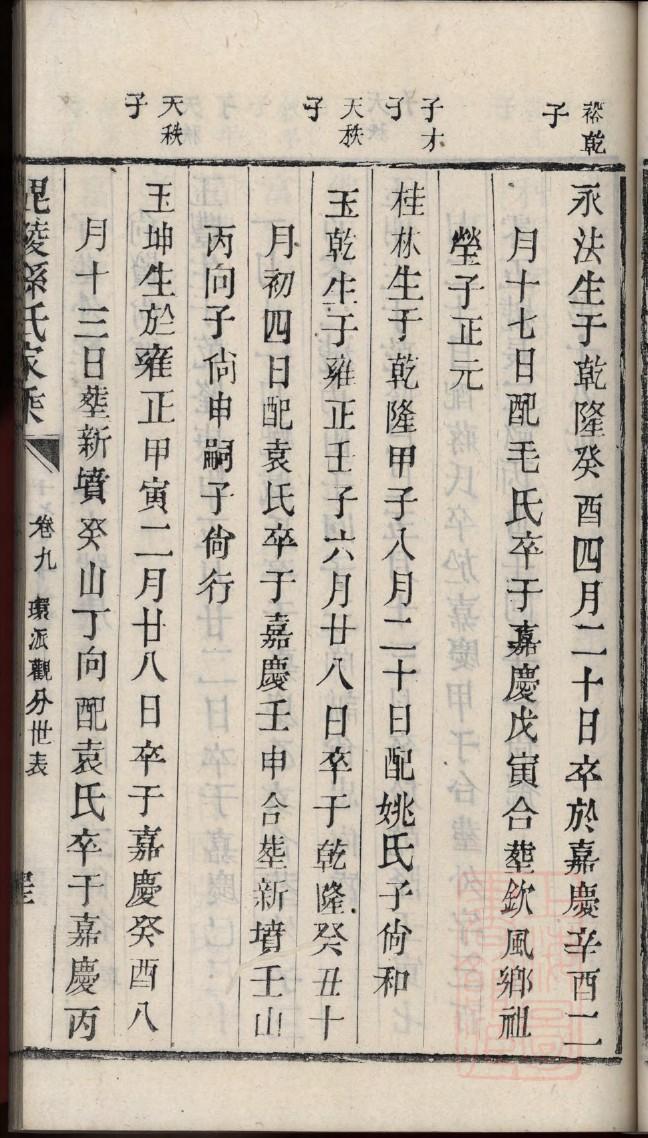 裕乾
子
永法生于乾隆癸酉四月二十日卒於嘉慶辛酉二
月十七日配毛氏卒于嘉慶戊寅合塟欽風鄉祖
塋子正元
子才
子
桂林生于乾隆甲子八月二十日配姚氏子尙和
天秩
子
玉乾生于雍正壬子六月廿八日卒于乾隆癸丑十
月初四日配袁氏卒于嘉慶壬申合塟新墳壬山
丙向子尙申嗣子尙行
天秩
子
玉坤生於雍正甲寅二月廿八日卒于嘉慶癸酉八
月十三日塟新墳癸山丁向配袁氏卒于嘉慶丙
毘陵孫氏家乘
卷九
環派觀分世表